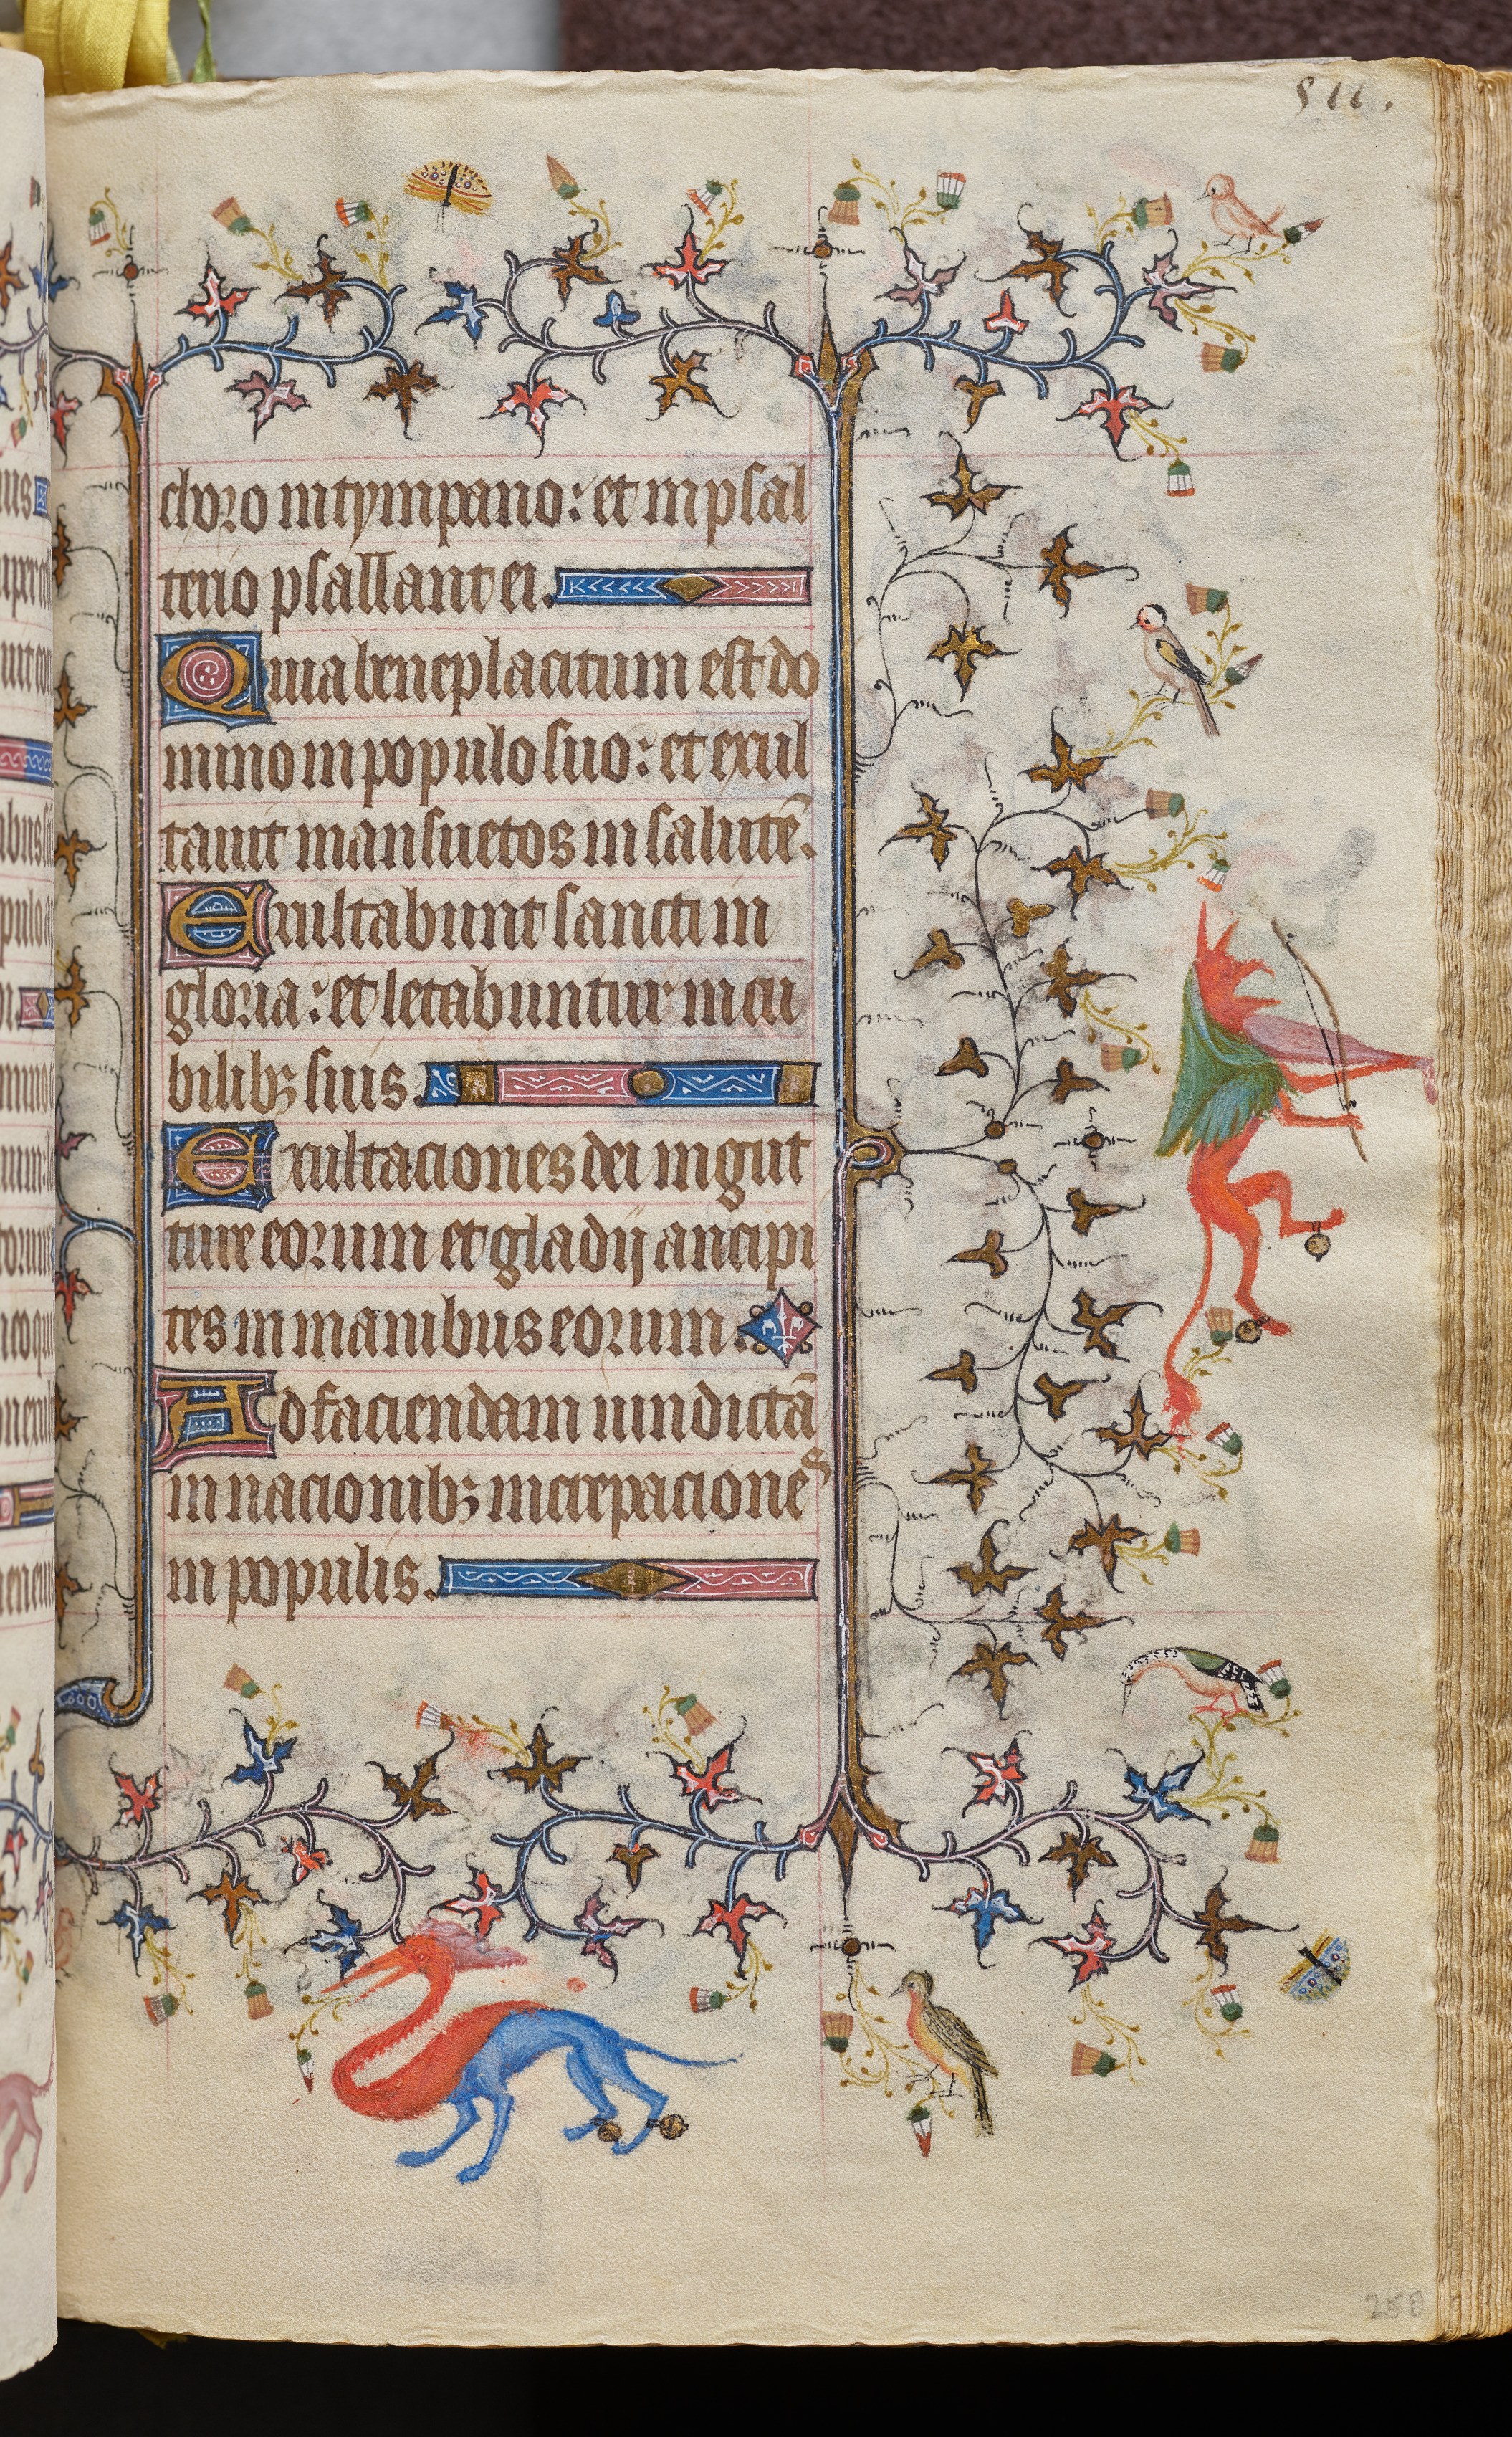 choro in tympano: et in psal
terio psallant ei.
Quia beneplacitum est do
mino in populo suo: et exul
tauit mansuetos in salutē.
Exultabunt sancti in
gloria: et letabuntur in cu
bilibꝫ suis.
Exultaciones dei in gut
ture eorum et gladij ancipi
tes in manibus eorum.
Ad faciendam uindictā
in nacionibꝫ increpaciones
in populis.
250